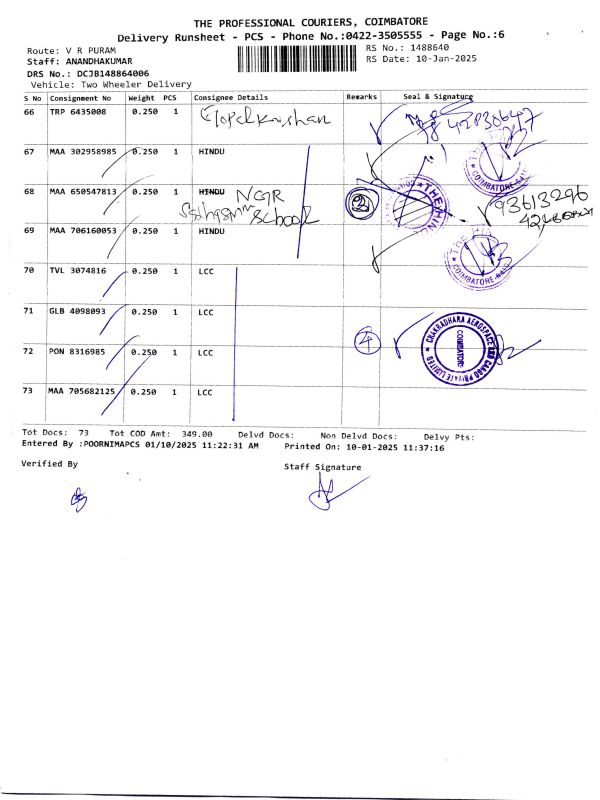 THE PROFESSIONAL COURIERS, COIMBATORE
Delivery Runsheet - PCS - Phone No.:0422-3505555 - Page No.:6
Route: V R PURAM
RS No.: 1488640
Staff: ANANDHAKUMAR
RS Date: 10-Jan-2025
DRS No.: DCJB148864006
Vehicle: Two Wheeler Delivery
S No Consignment No Weight PCS Consignee Details Remarks Seal & Signature
66 TRP 6435008 0.250 1
67 MAA 302958985 0.250 1 HINDU
68 MAA 650547813 0.250 1 HINDU NGR
School
69 MAA 706160053 0.250 1 HINDU
70 TVL 3074816 0.250 1 LCC
71 GLB 4098093 0.250 1 LCC
72 PON 8316985 0.250 1 LCC
4
CHAKRADHARA AEROSPACE AND CARGO PRIVATE LIMITED
COIMBATORE
73 MAA 705682125 0.250 1 LCC
Tot Docs: 73 Tot COD Amt: 349.00 Delvd Docs: Non Delvd Docs: Delvy Pts:
Entered By :POORNIMAPCS 01/10/2025 11:22:31 AM Printed On: 10-01-2025 11:37:16
Verified By
Staff Signature